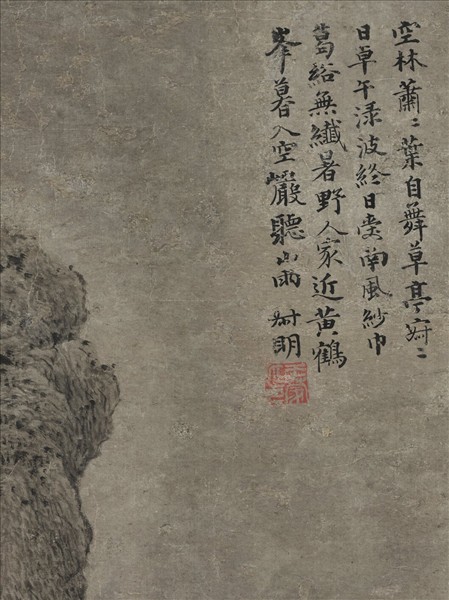 空林蕭〻葉自舞草亭寂〻
日卓午淥波終日愛南風紗巾
葛綌無纖暑野人家近黃鶴
峯暮入空巖聽山雨 叔明